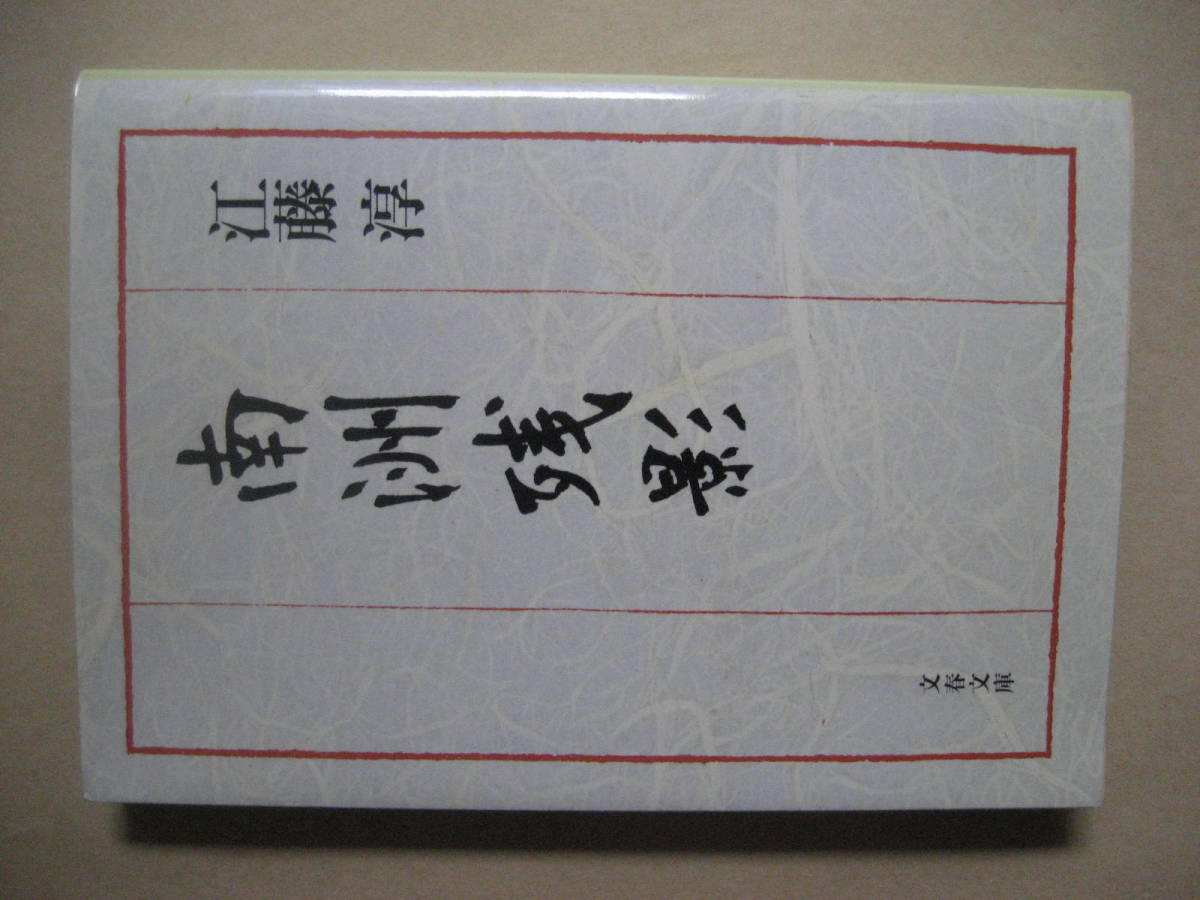 南洲残影
江藤淳
文春文庫